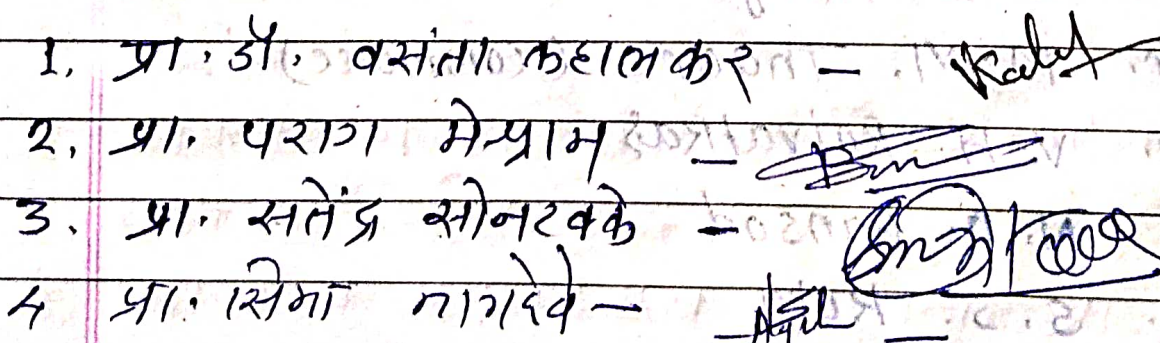 1. प्रा. डॉ. वसंता कहालकर –
2. प्रा. पराग मेश्राम –
3. प्रा. सतेंद्र सोनटक्के –
4 प्रा. सिमा नागदेवे –